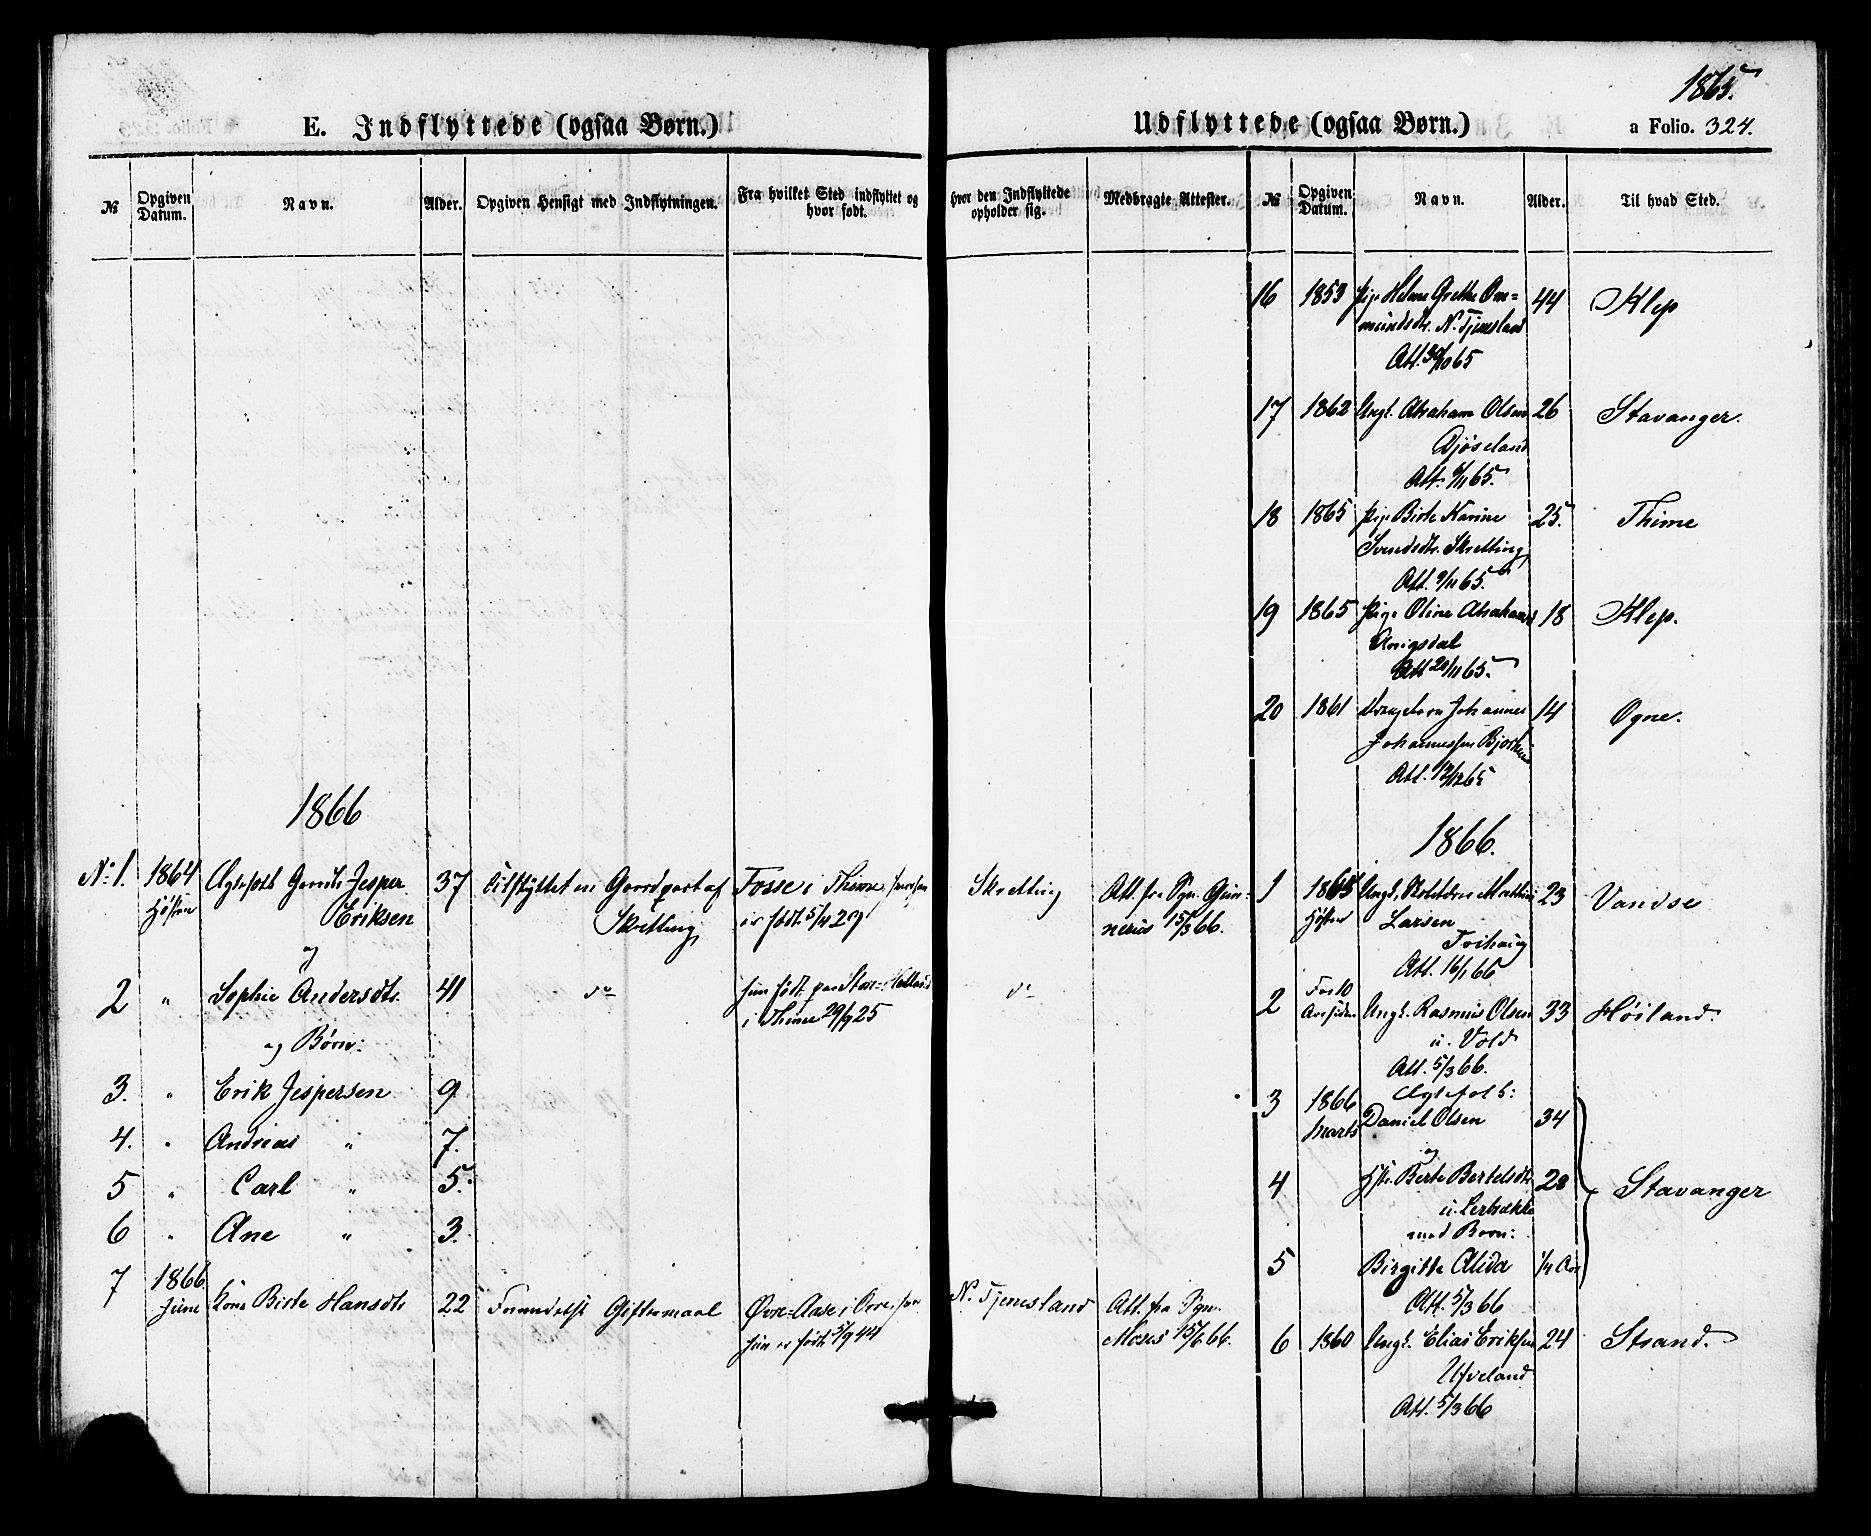 1865.
E. Indflyttede (ogsaa Børn.)
Udflyttede (ogsaa Børn.)
a Folio. 324.
№ Opgiven Datum. Navn. Alder. Opgiven Hensigt med Indflytningen. Fra hvilket Sted indflyttet og hvor født. hvor den Indflyttede opholder sig. Medbragte Attester. № Opgiven Datum. Navn. Alder. Til hvad Sted.
16 1853 Pige Helene Grethe Om= 44 Klep
mundsdtr. N. Tjemsland
Att. 30/10 65
17 1862 Ungk. Abraham Olsen 26 Stavanger.
Djøseland
Att. 65.
18 1865 Pige Birte Karine 25. Thime
Svendsdtr. Skretting
Att. 9/11 65.
19 1865 Pige Oline Abrahamsd 18 Klep.
Anigsdal
Att 20/11 65.
20 1861 Drengebarn Johannes 14 Ogne.
Johannessen
Att. 12/12 65
1866
No 1. 1864 Høsten Ægtefolk Jesper 37 Tilflyttet en Gaardpart af Fosse i Thime, Skretting Att. fra Pgr. Gun-
Eriksen Skretting er født 5/4 29 nerius 15/3 66.
og
2 " Sophie Andersdtr. 41 do hun født paa i Thime 29/9 25 do
og Børn:
3. " Erik Jespersen 9
4. " Andreas " 7.
5 " Carl " 5.
6 " Ane " 3.
7 1866 June Kone Birte Hansdtr 22 Giftermaal Øvre-Aase i Orre, N. Tjemsland Att. fra Pgr.
hun er født 5/9 44 Moses 15/6 66.
1866.
1 1865 Høsten Ungk. 23 Vandse
Larsen
Att. 16/1 66
2 For 10 Aar siden Ungk. Rasmus Olsen 33 Høiland.
u. Vold
Att. 5/3 66.
Ægtefolk:
3 1866 Marts Daniel Olsen 34
og
4 Hst. Berte Bertelsdtr 28 Stavanger
med Børn:
5 Birgitte Alida 1/4 Aar
Att. 5/3 66
6 1860 Ungk. Elias Eriksen 24 Strand.
Ufveland
Att. 5/3 66